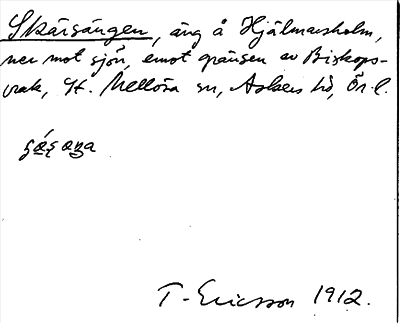 Skärsängen, äng å Hjälmarsholm,
ner mot sjön, emot gränsen av Biskops-
vrak, St. Mellösa sn, Askers hd, Ör. l.
T. Ericsson 1912.